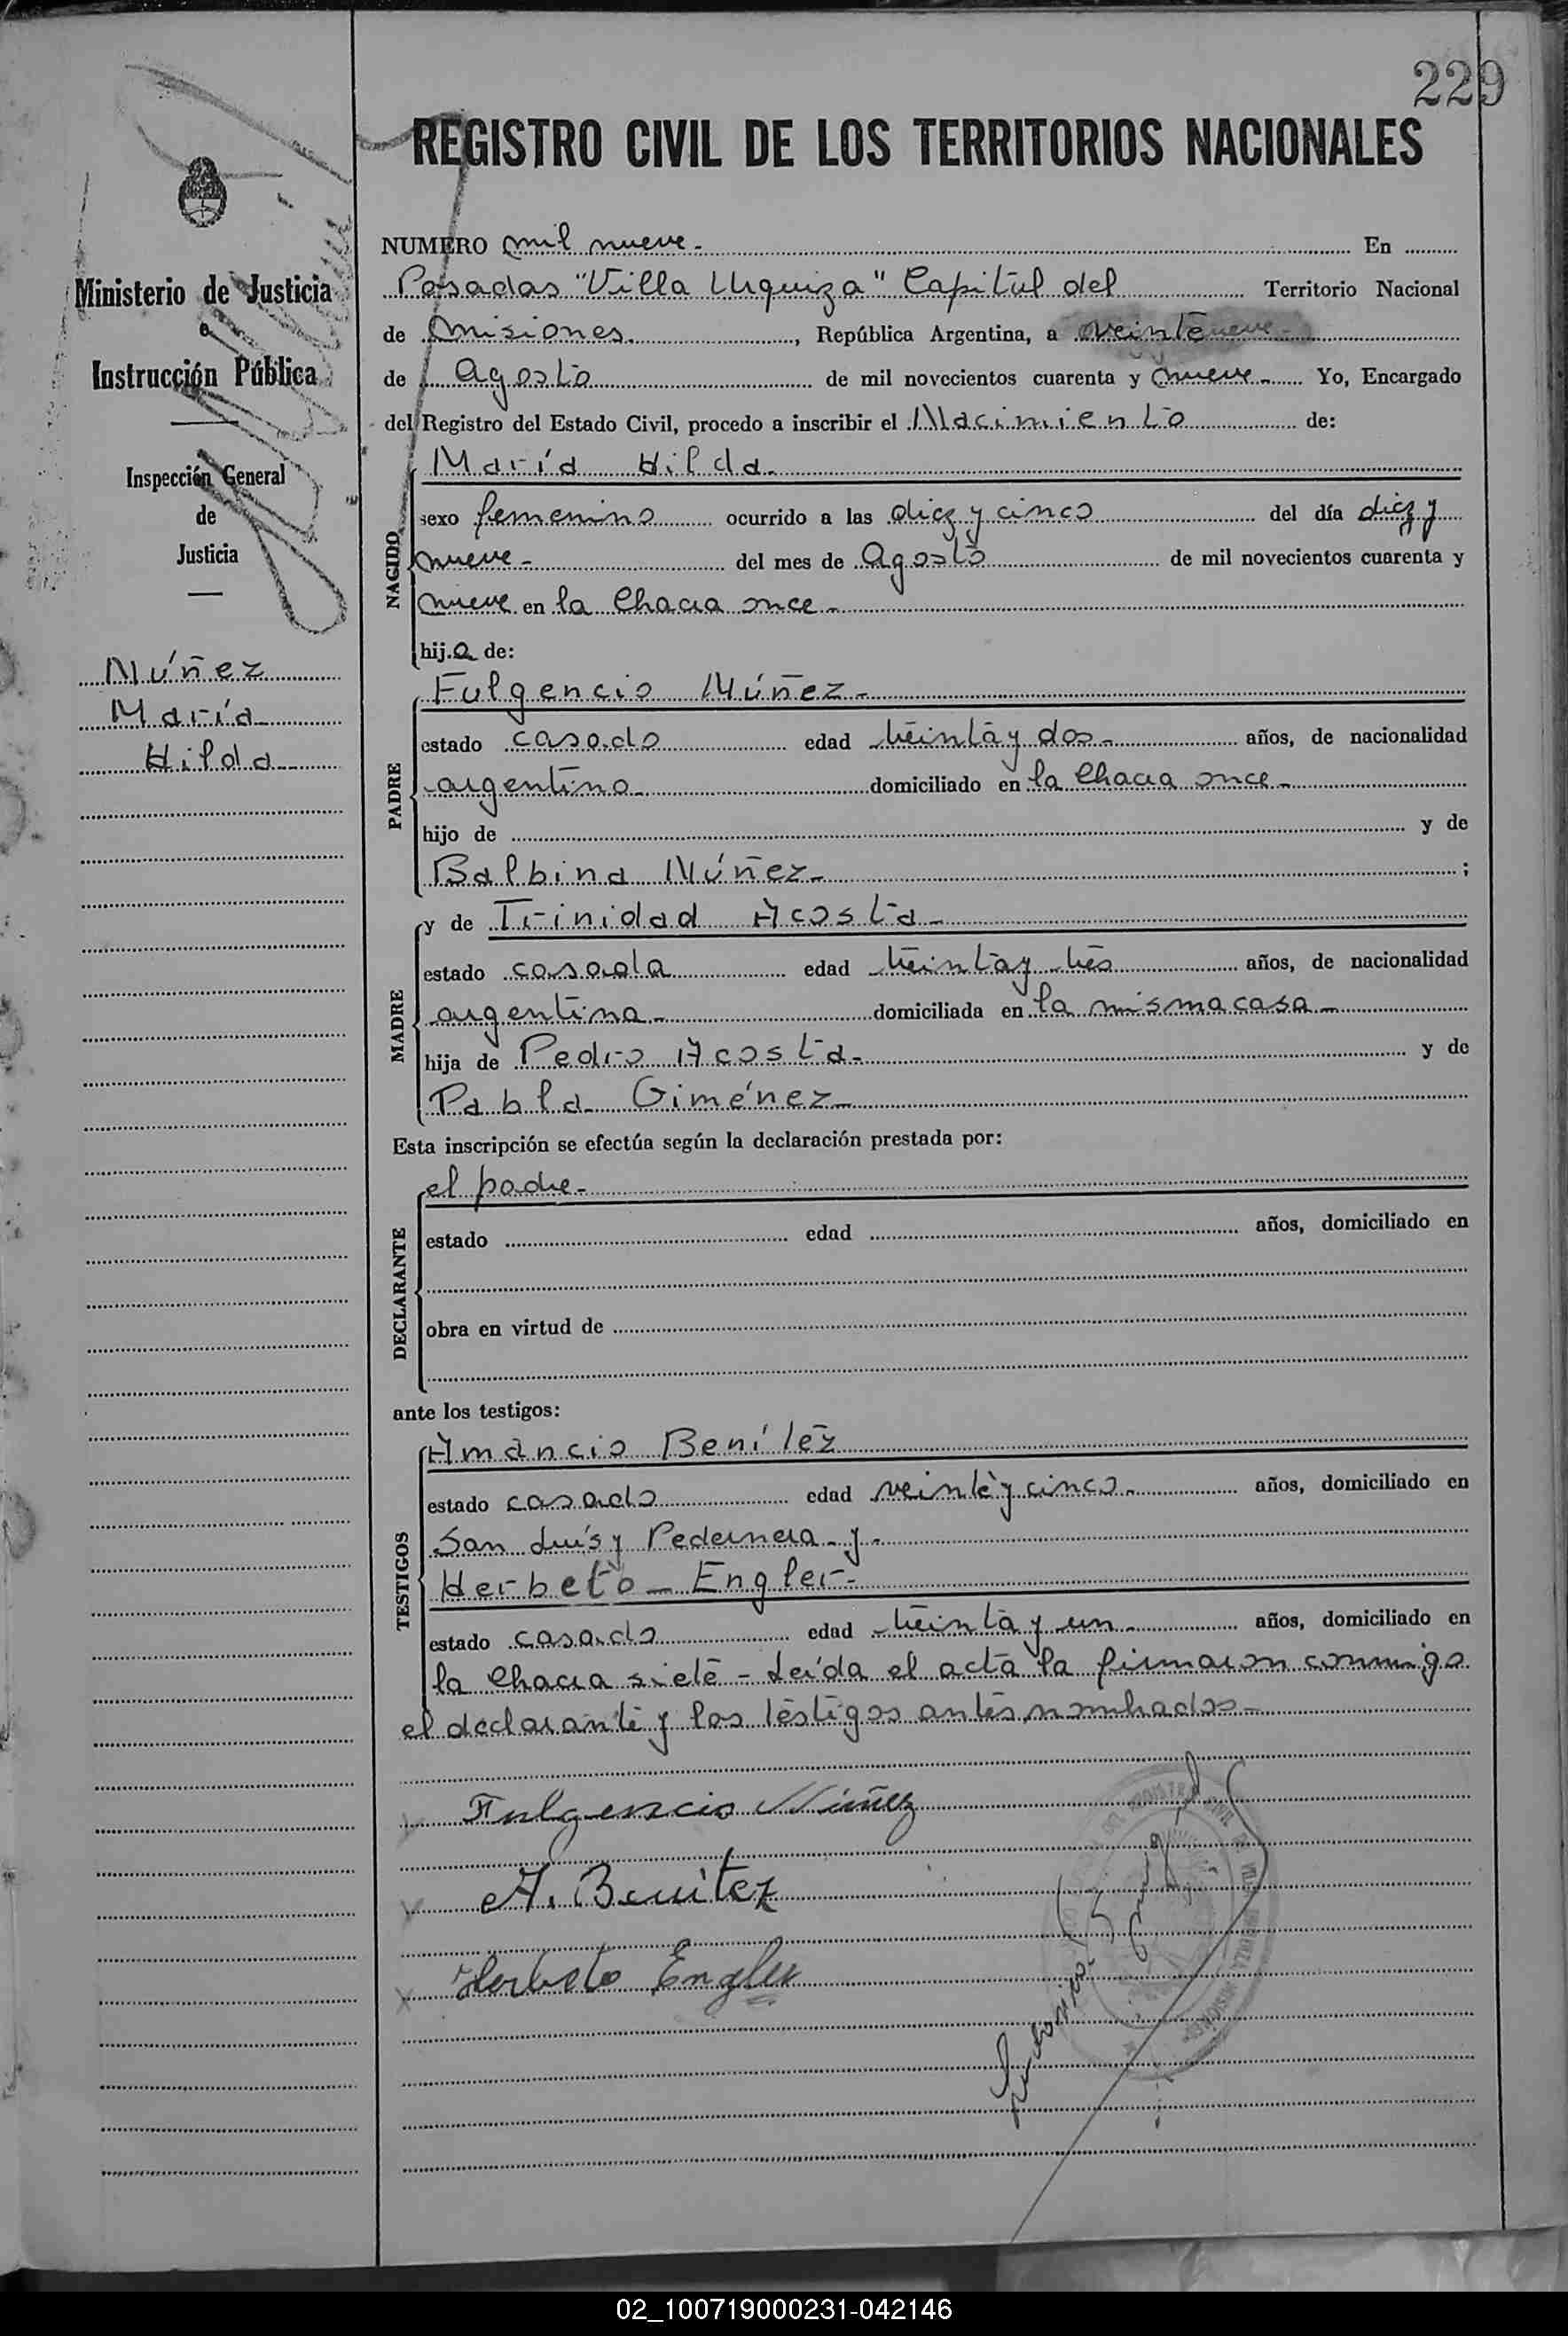 229
REGISTRO CIVIL DE LOS TERRITORIOS NACIONALES
Ministerio de Justicia
e
Instrucción Pública
Inspección General
de
Justicia
Núñez
María
Hilda
NUMERO mil nueve.- En
Posadas "Villa Urquiza" Capital del Territorio Nacional
de Misiones, República Argentina, a veintinueve-
de Agosto de mil novecientos cuarenta y nueve- Yo, Encargado
del Registro del Estado Civil, procedo a inscribir el Nacimiento de:
NACIDO
María Hilda.
sexo femenino ocurrido a las diez y cinco del día diez y
nueve- del mes de Agosto de mil novecientos cuarenta y
nueve en la Chacra once-
hija de:
PADRE
Fulgencio Núñez-
estado casado edad treinta y dos- años, de nacionalidad
argentino- domiciliado en la Chacra once-
hijo de y de
Balbina Núñez- ;
MADRE
y de Trinidad Acosta-
estado casada edad treinta y tres años, de nacionalidad
argentina- domiciliada en la misma casa-
hija de Pedro Acosta- y de
Pabla Giménez-
Esta inscripción se efectúa según la declaración prestada por:
DECLARANTE
el padre-
estado edad años, domiciliado en
obra en virtud de
ante los testigos:
TESTIGOS
Amancio Benítez
estado casado edad veinte y cinco- años, domiciliado en
San Luis y Pedernera- y-
Herbeto- Engler-
estado casado edad treinta y un- años, domiciliado en
la Chacra siete- Leída el acta la firmaron conmigo
el declarante y los testigos antes nombrados-
Fulgencio Núñez
A. Benitez
Herbeto Engler
02_100719000231-042146